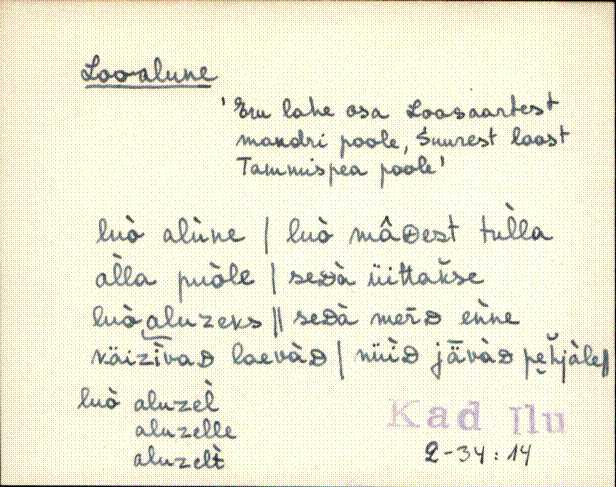 Looalune
'Eru lahe osa Loosaartest
mandri poole, Suurest loost
Tammispea poole'
luò alùne | luò mâᴅest tùlla
àlla puòle | seᴅà üittakse
luò aluzeks || seᴅà merᴅ enne
käizīvaᴅ laevàᴅ | nüìᴅ jǟvàᴅ pehjàle//
luò aluzel
aluzelle
aluzelt
Kad Ilu
2-34:14